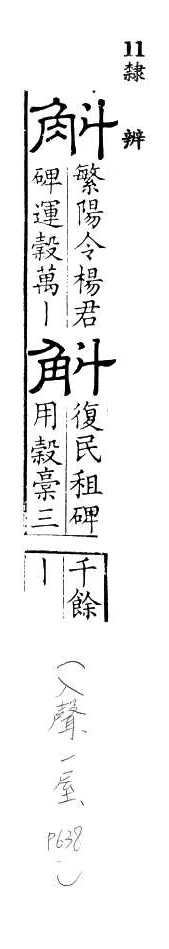 11隸辨
斛
繁陽令楊君
碑運穀萬丨
斛
復民租碑
用穀稾三
千餘
丨
(入聲、一屋、P638)